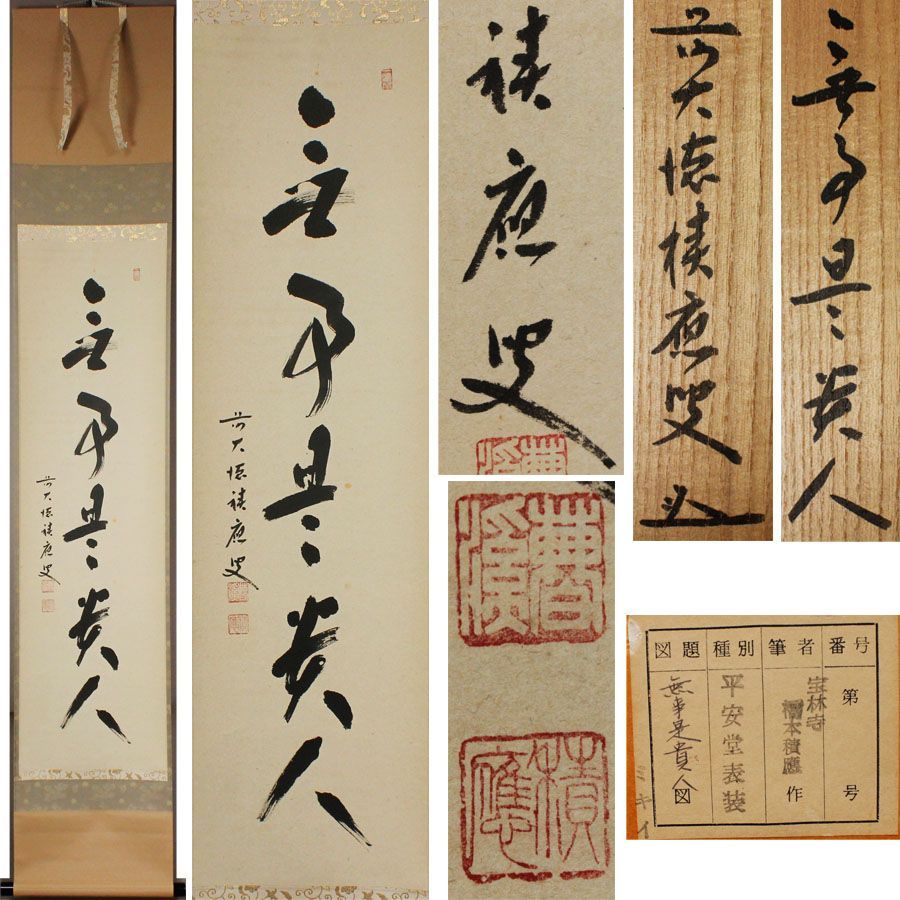 無事是貴人
前大徳積應叟
無事是貴人
前大徳積應叟
積應叟
前大徳積應叟
無事是貴人
積應
番号
第
号
筆者
宝林寺
橋本積應
作
種別
平安堂表装
図題
無事是貴人図
ミキイ